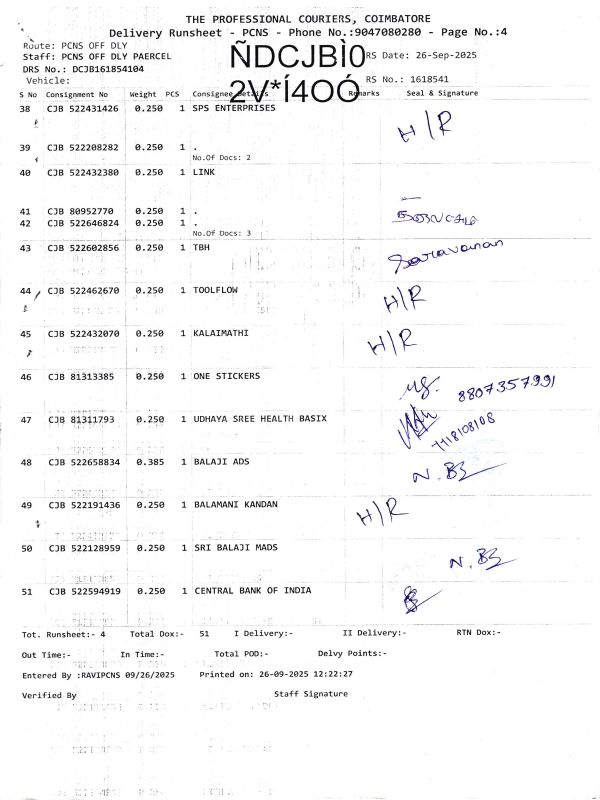 THE PROFESSIONAL COURIERS, COIMBATORE
Delivery Runsheet - PCNS - Phone No.:9047080280 - Page No.:4
Route: PCNS OFF DLY
Staff: PCNS OFF DLY PAERCEL
ÑDCJBÌ0
RS Date: 26-Sep-2025
DRS No.: DCJB161854104
Vehicle:
2V*Í4OÓ
RS No.: 1618541
S No Consignment No Weight PCS Consignee Details Remarks Seal & Signature
38 CJB 522431426 0.250 1 SPS ENTERPRISES H/R
39 CJB 522208282 0.250 1 .
No.Of Docs: 2
40 CJB 522432380 0.250 1 LINK
41 CJB 80952770 0.250 1 .
42 CJB 522646824 0.250 1 .
No.Of Docs: 3
43 CJB 522602856 0.250 1 TBH Saravanan
44 CJB 522462670 0.250 1 TOOLFLOW H/R
45 CJB 522432070 0.250 1 KALAIMATHI H/R
46 CJB 81313385 0.250 1 ONE STICKERS 8807357991
47 CJB 81311793 0.250 1 UDHAYA SREE HEALTH BASIX
48 CJB 522658834 0.385 1 BALAJI ADS
49 CJB 522191436 0.250 1 BALAMANI KANDAN H/R
50 CJB 522128959 0.250 1 SRI BALAJI MADS
51 CJB 522594919 0.250 1 CENTRAL BANK OF INDIA
Tot. Runsheet:- 4 Total Dox:- 51 I Delivery:- II Delivery:- RTN Dox:-
Out Time:- In Time:- Total POD:- Delvy Points:-
Entered By :RAVIPCNS 09/26/2025 Printed on: 26-09-2025 12:22:27
Verified By Staff Signature